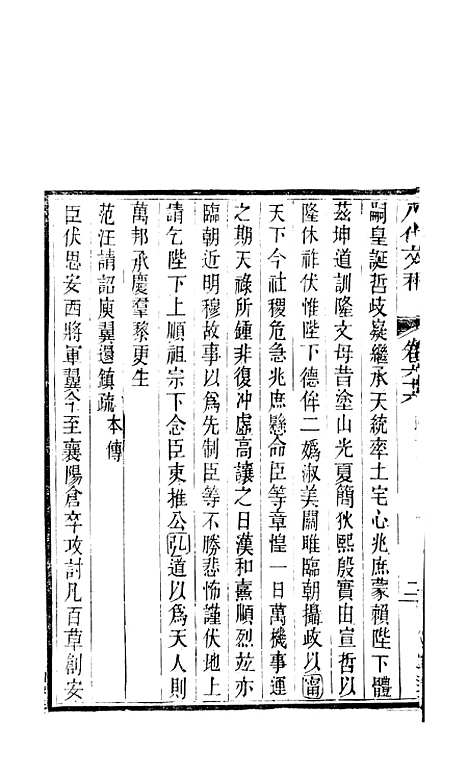 八代文粹
卷六六
二
嗣皇誕哲歧嶷繼承天統率土宅心兆庶蒙賴陛下體
茲坤道訓隆文母昔塗山光夏簡狄熙殷實由宣哲以
隆休祚伏惟陛下德侔二嬀淑美關雎臨朝攝政以甯
天下今社稷危急兆庶懸命臣等章惶一日萬機事運
之期天祿所鍾非復沖虛高讓之日漢和熹順烈並亦
臨朝近明穆故事以爲先制臣等不勝悲怖謹伏地上
請乞陛下上順祖宗下念臣吏推公弘道以爲天人則
萬邦承慶羣黎更生
范汪請詔庾翼還鎮疏 本傳
臣伏思安西將軍翼今至襄陽倉卒攻討凡百草創安